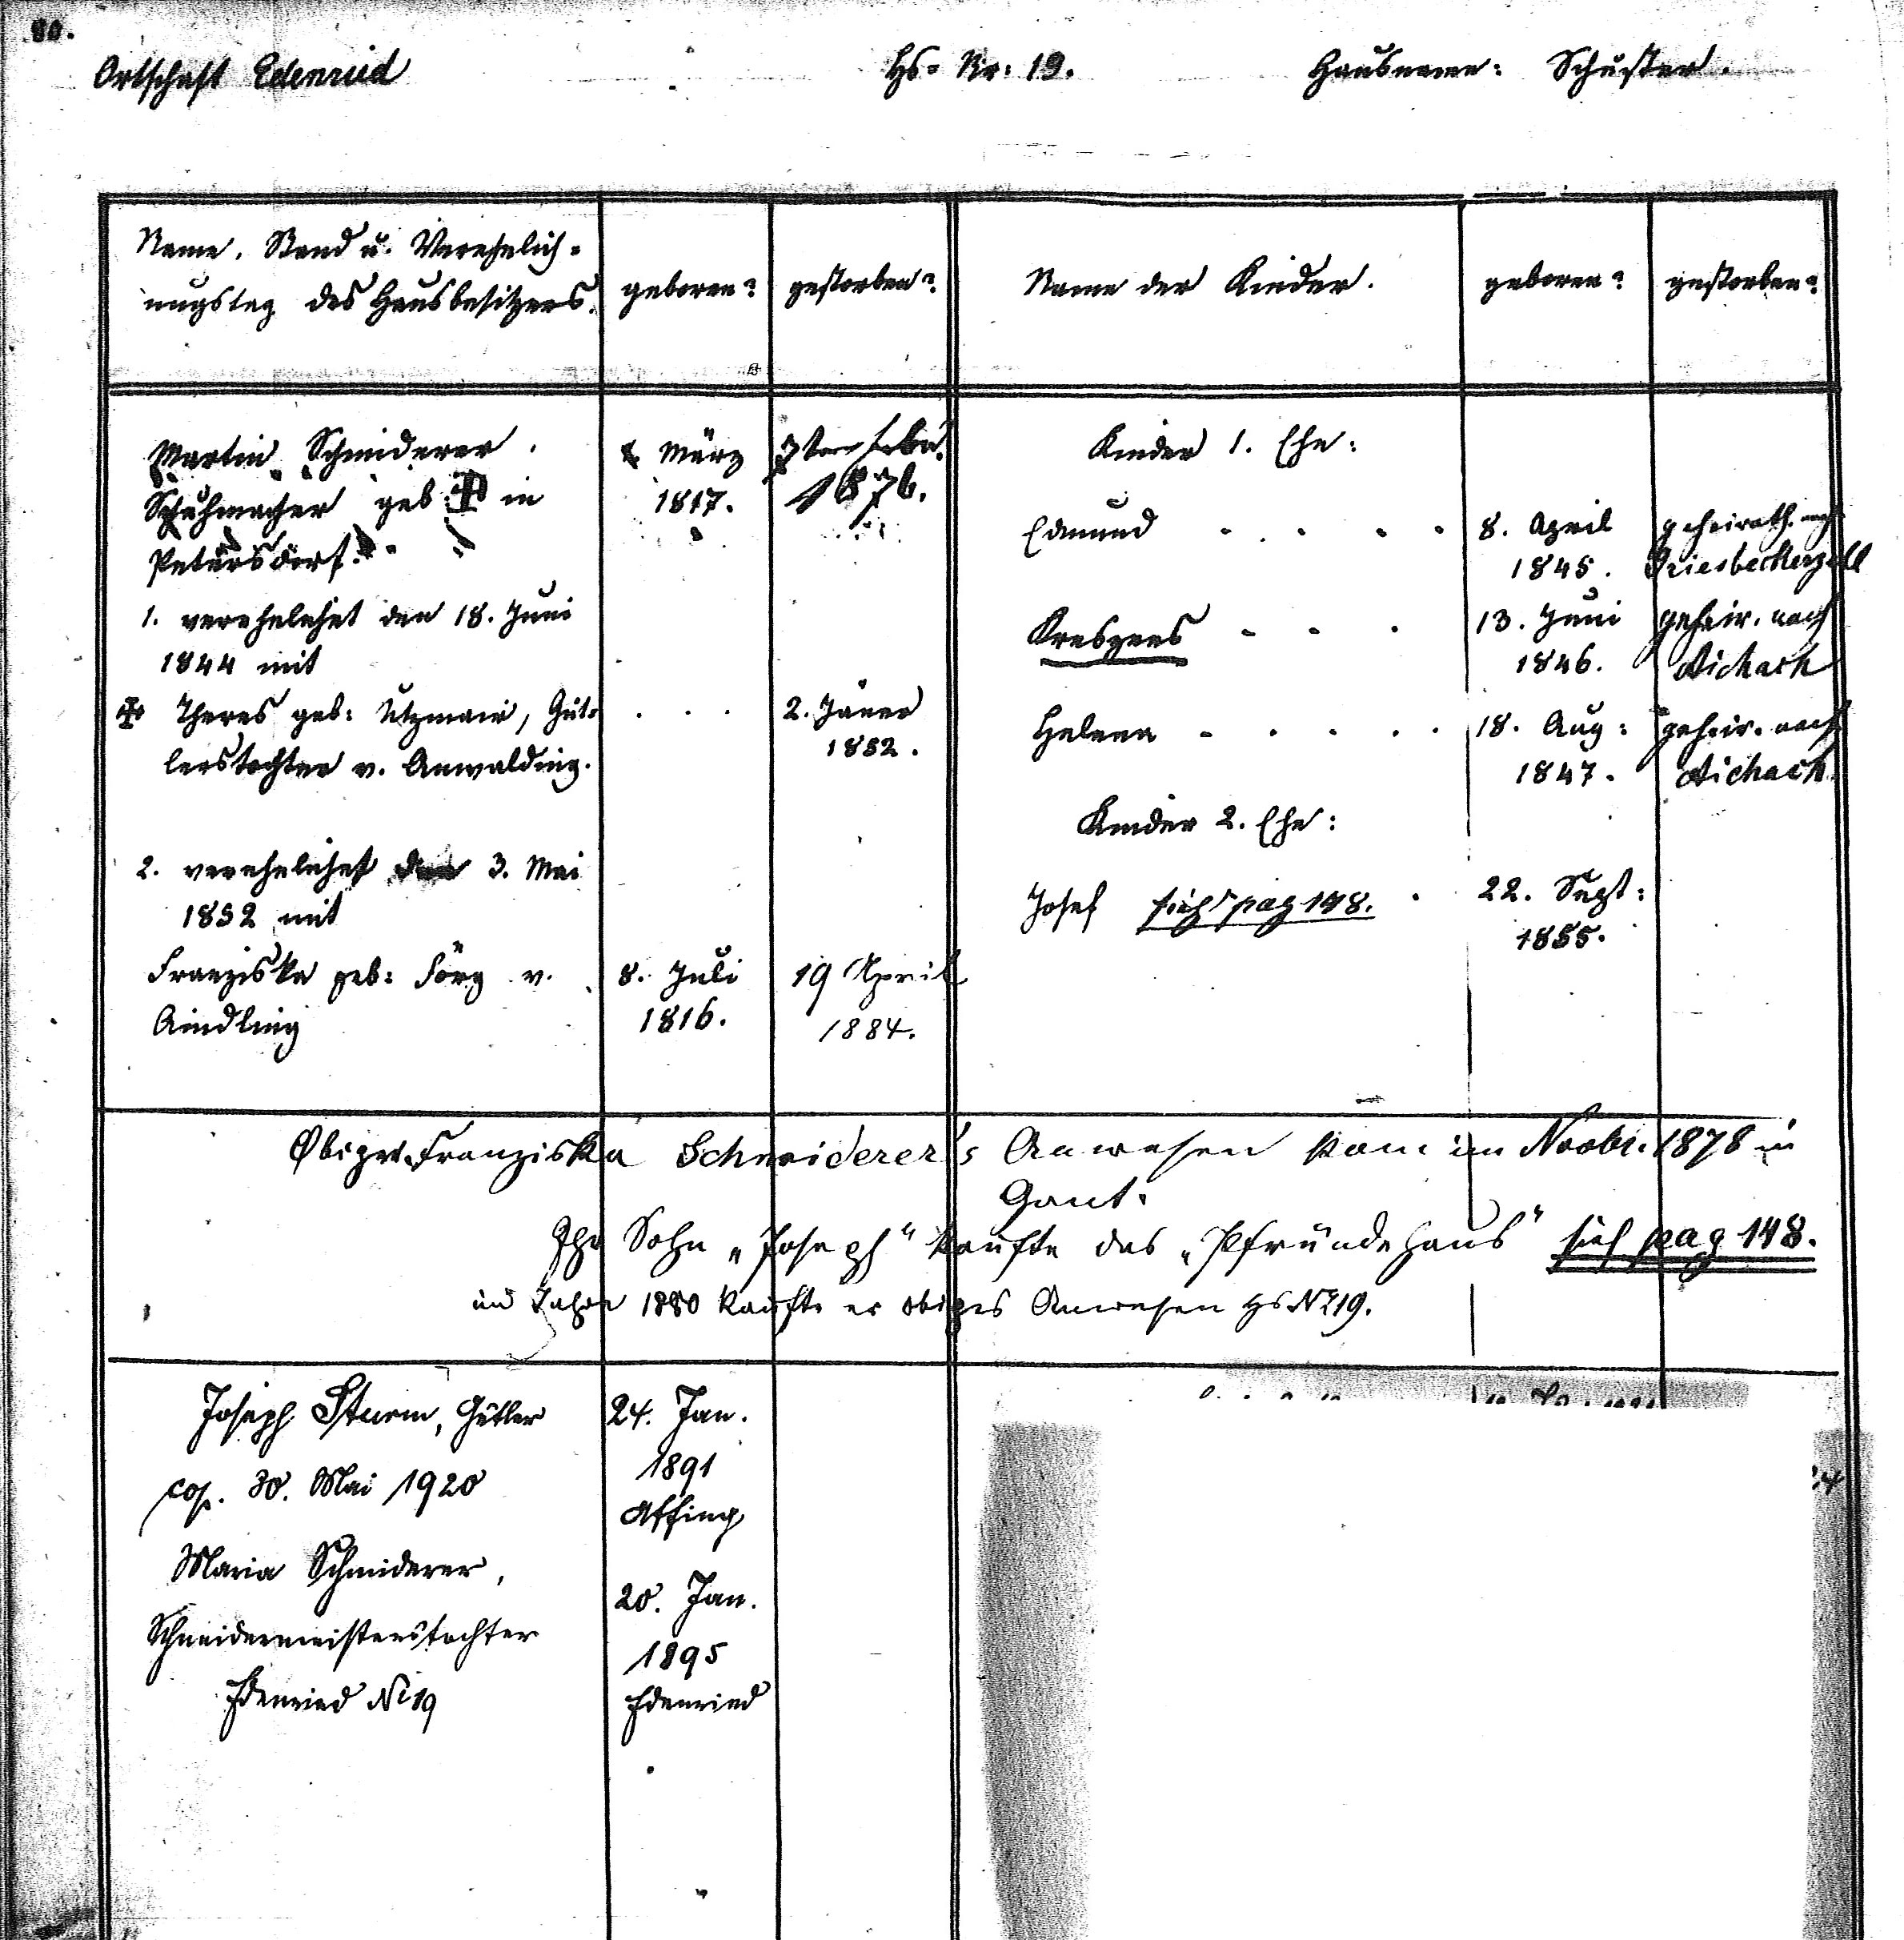 80.
Ortschaft Edenried Hs= Nr: 19. Hausname: Schuster.
Name, Stand u. Verehelich=
ungstag des Hausbesitzers.
geboren?
gestorben?
Name der Kinder.
geboren?
gestorben?
Martin Schmiderer.
Schuhmacher geb: in
Petersdorf.
März
1817.
1876.
1. verehelichet den 18. Juni
1844 mit
Theres geb: Utzmair, Güt=
lerstochter v. Anwalding.
2. Jäner
1852.
2. verehelichet den 3. Mai
1852 mit
Franziska geb: Förg v.
Aindling
8. Juli
1816.
19 April
1884.
Kinder 1. Ehe:
Edmund
8. April
1845.
geheirath. nach
Griesbeckerzell
Kreszens
13. Juni
1846.
geheir. nach
Aichach
Helena
18. Aug:
1847.
geheir. nach
Aichach
Kinder 2. Ehe:
Josef sieh pag 148.
22. Sept:
1855.
Obiger Franziska Schmiderer's Anwesen kam im Novbr. 1878 in
Gant.
Ihr Sohn „Joseph" kaufte das „Pfründehaus" sieh pag 148.
im Jahre 1880 kaufte er obiges Anwesen Hs No 19.
Joseph Sturm, Gütler
cop. 30. Mai 1920
Maria Schmiderer,
Schneidermeisterstochter
Edenried No 19
24. Jan.
1891
Affing
20. Jan.
1895
Edenried